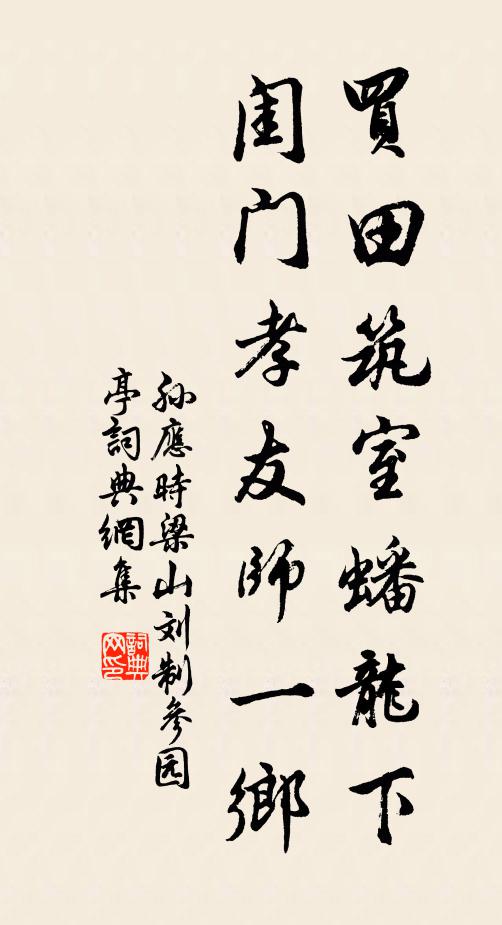 買田筑室蟠龍下
闺门孝友師一鄉
孙應時梁山刘制參园
亭詞典網集
詞典网印